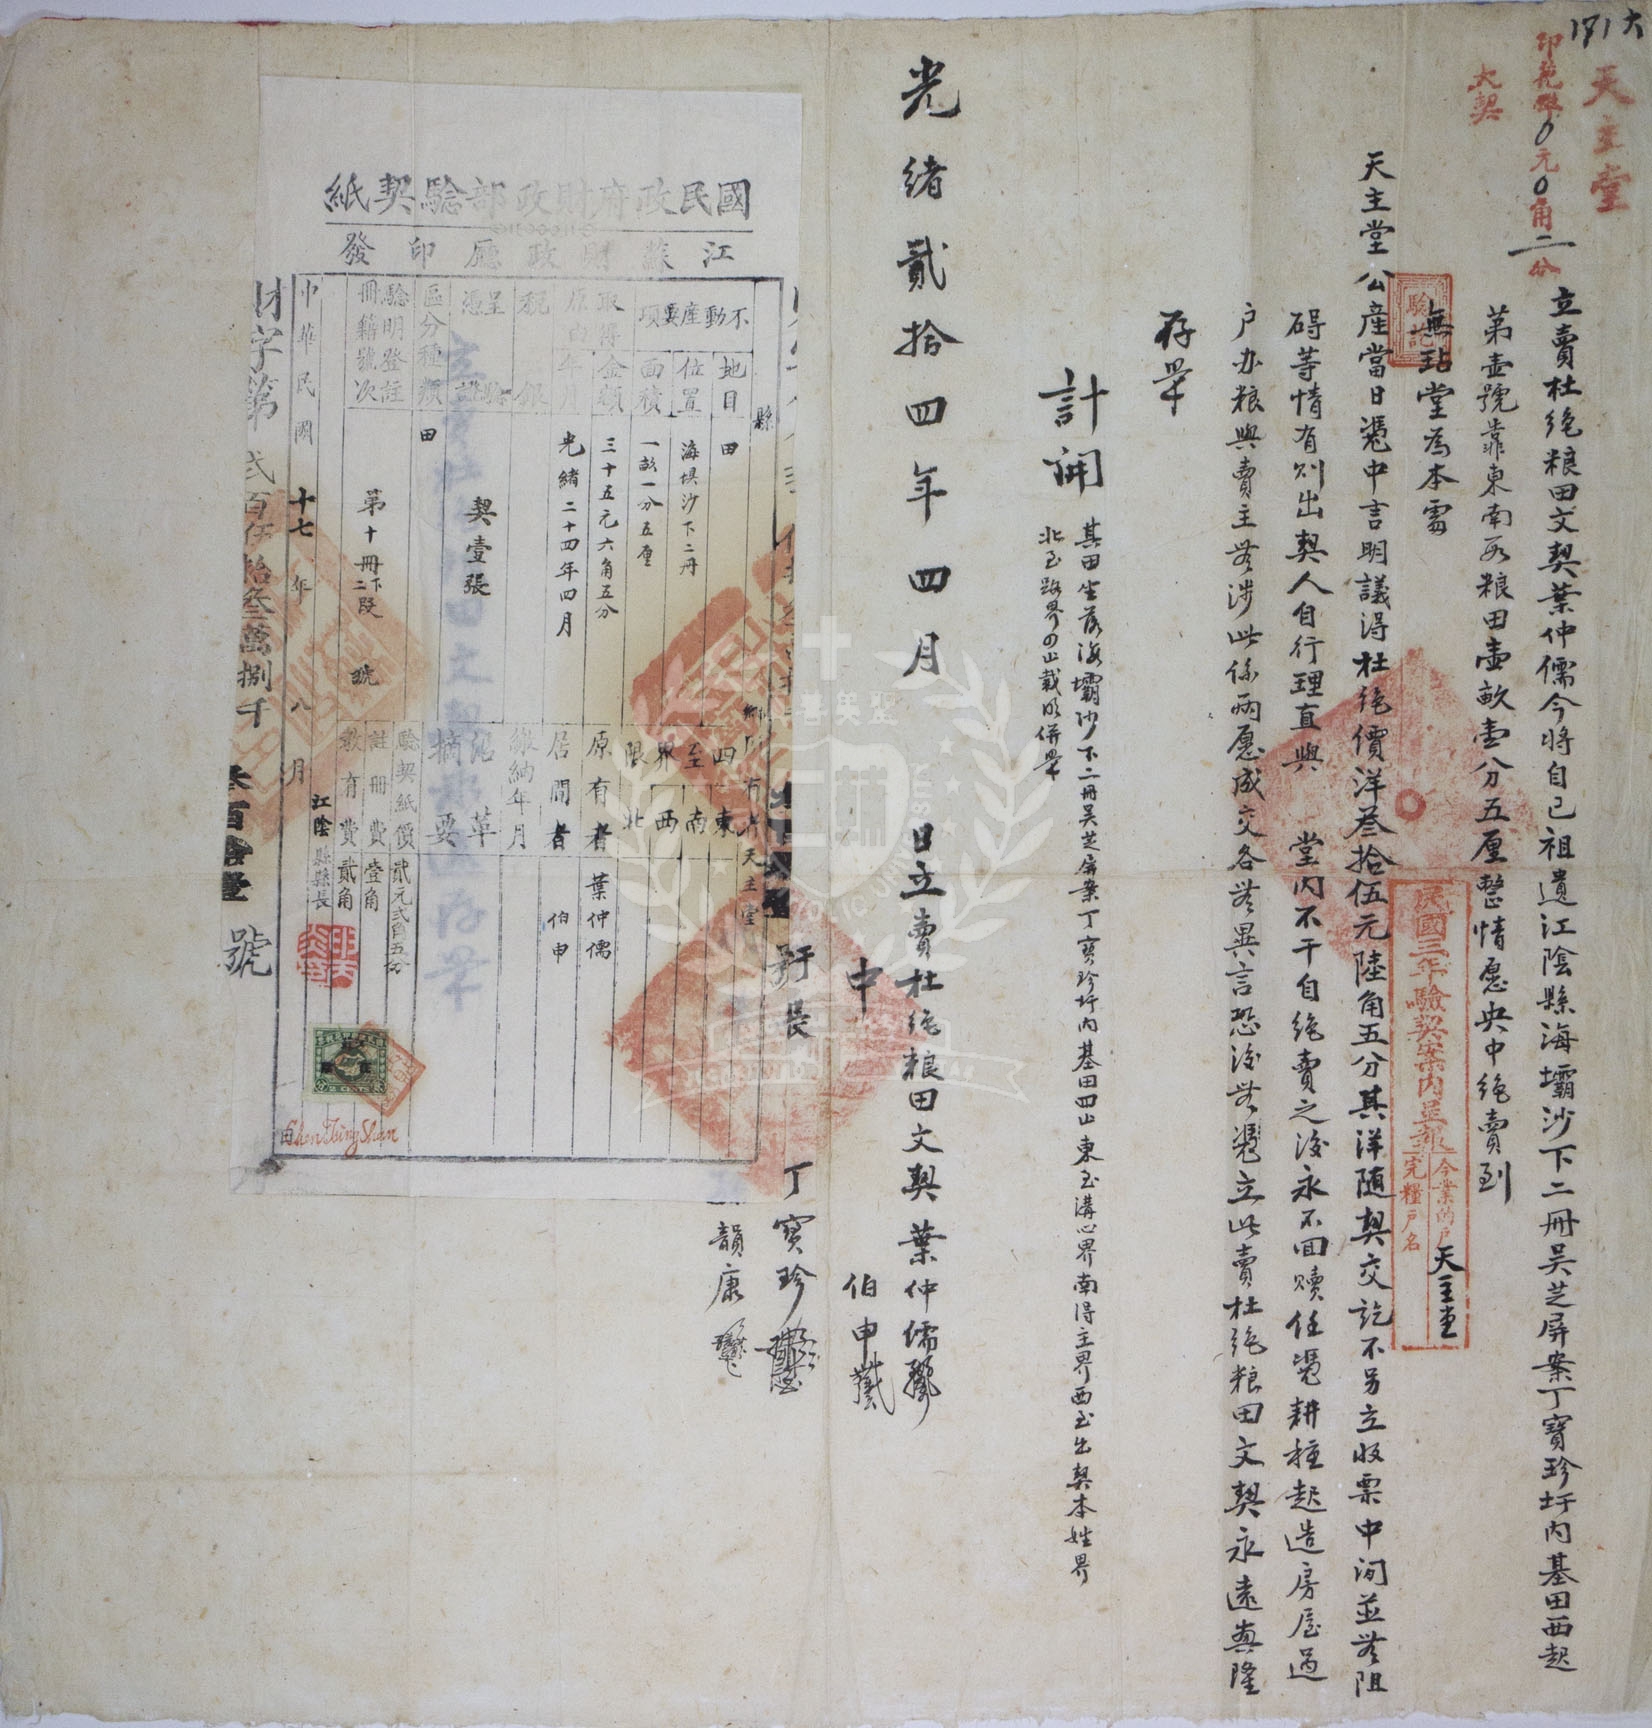 171大
天主堂
印花碑0元0角二分
大契
立賣杜绝粮田文契葉仲儒今將自己祖遺江陰縣海壩沙下二冊吴芝屏案丁寶珍圩内基田西起
第壹號靠東南段粮田壹畝壹分五厘整情愿央中绝賣到
無玷堂為本堂
天主堂公産當日凴中言明議淂杜绝價洋叁拾伍元陸角五分其洋随契交訖不另立收票中间並無阻
碍等情有则出契人自行理直與 堂内不干自绝賣之後永不回赎任凴耕種起造房屋過
户办粮與賣主無涉此係两愿成交各無異言恐後無凴立此賣杜绝粮田文契永遠興隆
存㽞
驗訖
民國三年驗契案内呈報
今業的户
完糧户名
天主堂
計開
其田坐落海壩沙下二冊吴芝屏案丁寶珍圩内基田四止東至溝心界南得主界西至出契本姓界
北至路界四止載明併㽞
光緒貳拾四年四月 日立賣杜绝粮田文契葉仲儒
中 伯申
圩長 丁寶珍
韻康
國民政府財政部驗契紙
江蘇財政廳印發
縣
鄉
所有者天主堂
不動產要項
地目 田
位置 海壩沙下二冊
面積 一畝一分五厘
四至界限
東
南
西
北
取得金額 三十五元六角五分
原由年月 光緒二十四年四月
原有者 葉仲儒
居間者 伯申
税銀
繳納年月
呈驗憑證 契壹張
沿革摘要
區分種類 田
驗明登註冊籍號次 第十冊下二段 號
驗契紙價 貳元弍角五分
註冊費 壹角
教育費 貳角
江陰縣縣長
中華民國十七年八月
財字第弍百伍拾叁萬捌千叁百拾壹號
由Shen Ting Shan